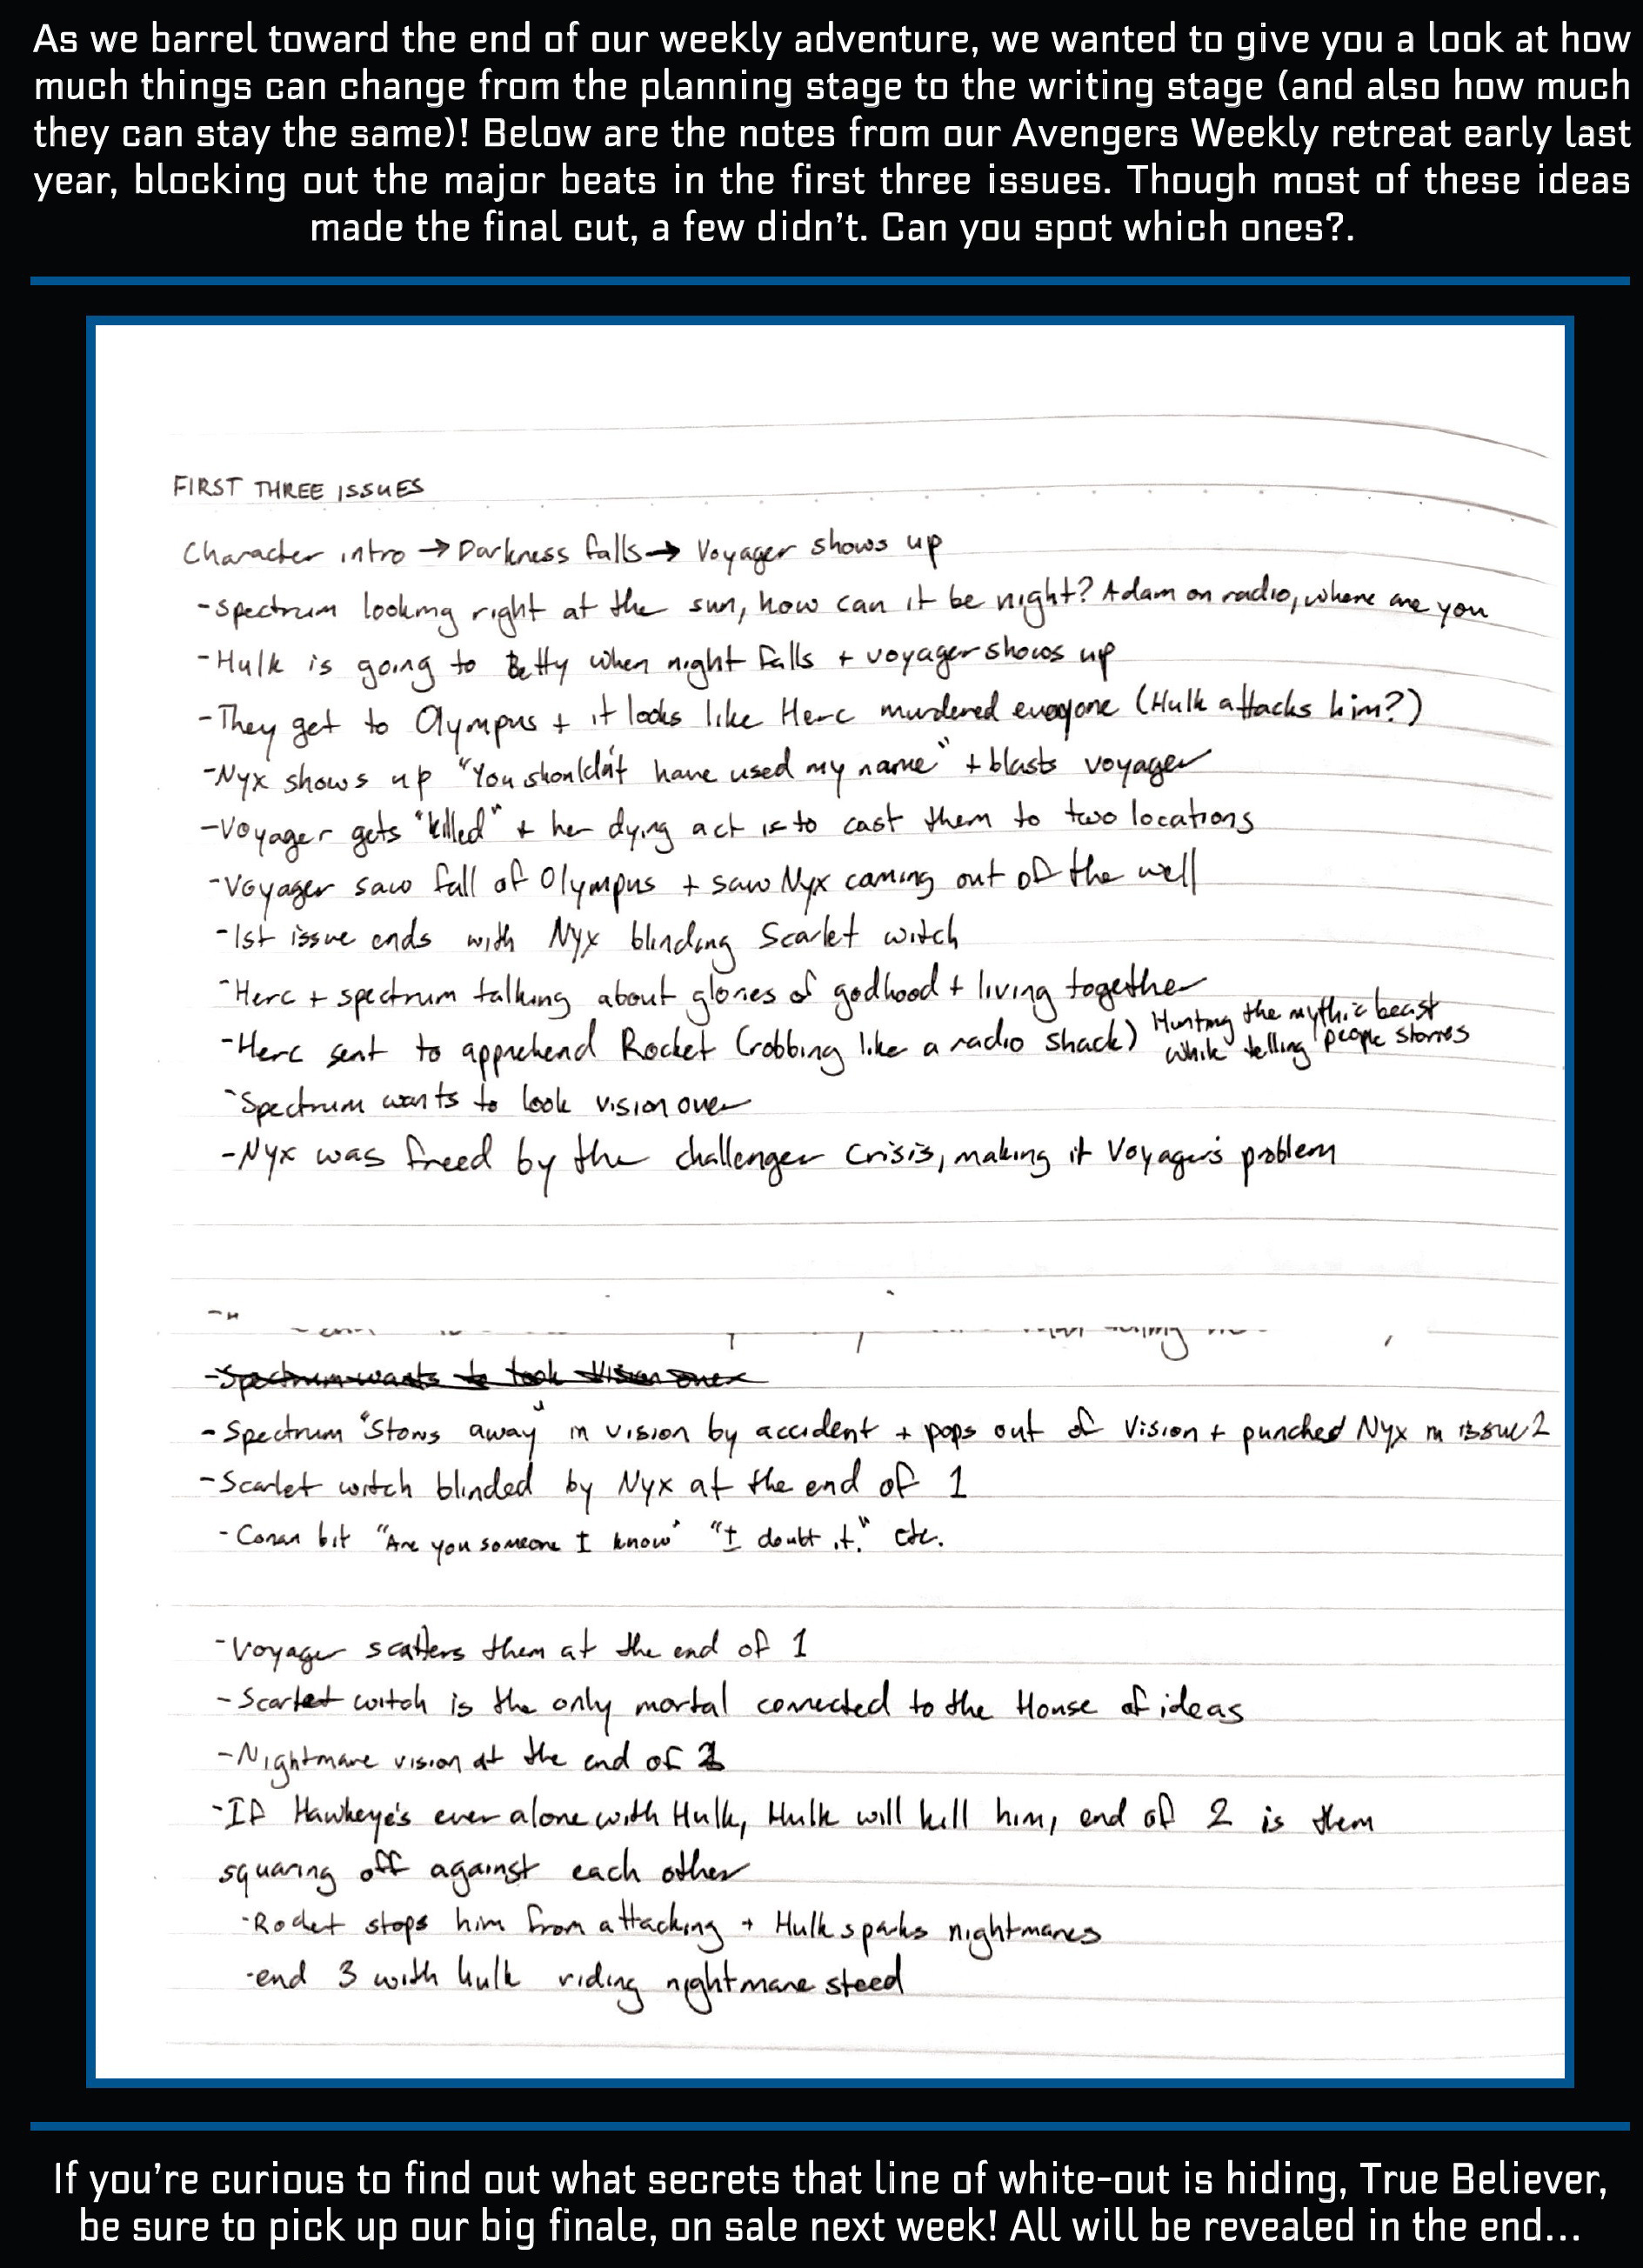 As we barrel toward the end of our weekly adventure, we wanted to give you a look at how
much things can change from the planning stage to the writing stage (and also how much
they can stay the same)! Below are the notes from our Avengers Weekly retreat early last
year, blocking out the major beats in the first three issues. Though most of these ideas
made the final cut, a few didn't. Can you spot which ones?.
FIRST THREE ISSUES
Character intro → Darkness falls → Voyager shows up
- Spectrum looking right at the sun, how can it be night? Adam on radio, where are you
- Hulk is going to Betty when night falls + voyager shows up
- They get to Olympus + it looks like Herc murdered everyone (Hulk attacks him?)
- Nyx shows up "You shouldn't have used my name" + blasts voyager
- Voyager gets "killed" + her dying act is to cast them to two locations
- Voyager saw fall of Olympus + saw Nyx coming out of the well
- 1st issue ends with Nyx blinding Scarlet witch
- Herc + spectrum talking about glories of godhood + living together
- Herc sent to apprehend Rocket (robbing like a radio shack) Hunting the mythic beast
while telling people stories
- Spectrum wants to look vision over
- Nyx was freed by the challenger crisis, making it Voyager's problem
- Spectrum wants to look Vision over
- Spectrum "Stows away" in vision by accident + pops out of Vision + punched Nyx in issue 2
- Scarlet witch blinded by Nyx at the end of 1
- Conan bit "Are you someone I know" "I doubt it." etc.
- Voyager scatters them at the end of 1
- Scarlet witch is the only mortal connected to the House of ideas
- Nightmare vision at the end of
- If Hawkeye's ever alone with Hulk, Hulk will kill him, end of 2 is them
squaring off against each other
- Rocket stops him from attacking + Hulk sparks nightmares
- end 3 with hulk riding nightmare steed
If you're curious to find out what secrets that line of white-out is hiding, True Believer,
be sure to pick up our big finale, on sale next week! All will be revealed in the end...